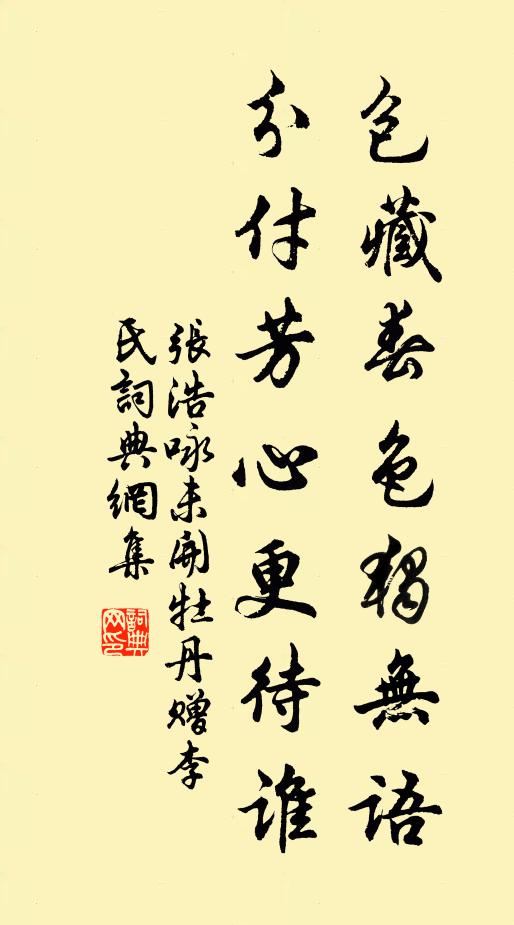 包藏春色獨無語
分付芳心更待誰
張浩咏未開牡丹贈李
氏詞典網集
詞典
网印